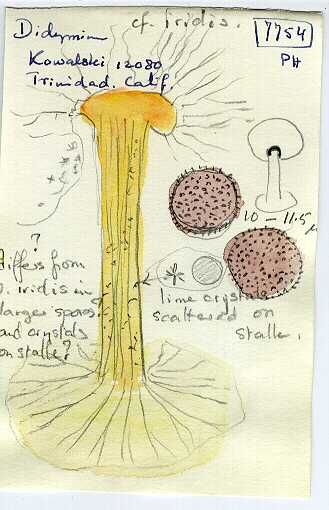 cf. iridis.
Didymium
Kowalski 12080
Trinidad. Calif.
7754
PH
10 - 11.5 µ
?
Differs from
D. iridis in
larger spores
and crystals
on stalk?
lime crystals
scattered on
stalk.